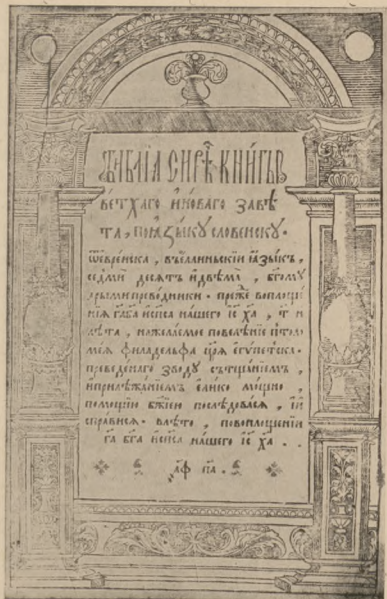 БИБЛІА СИРѢЧ КНИГЫ
ветхаго и новаго завѣ
та, по языку словенску.
ѿ еврейска, въ еллиньскїи языкъ,
седмїи десять и двѣма, бг҃ому
дрыми преводники. преже воплощє
нїа га҃ ба҃ и спс҃а нашего іс҃ ха҃, т҃ и
лѣта, на желаемое повелѣніе птолο
мея филаделфа цр҃я египетска.
преведенаго зводу съ тщанїемъ,
и прилѣжанїемъ елико мощно,
помощїю бж҃їею послѣдовася, и и
справися. в лѣто, по воплощенїи
га҃ ба҃ и спс҃а нашего іс҃ ха҃.
҂аф҃ па҃.